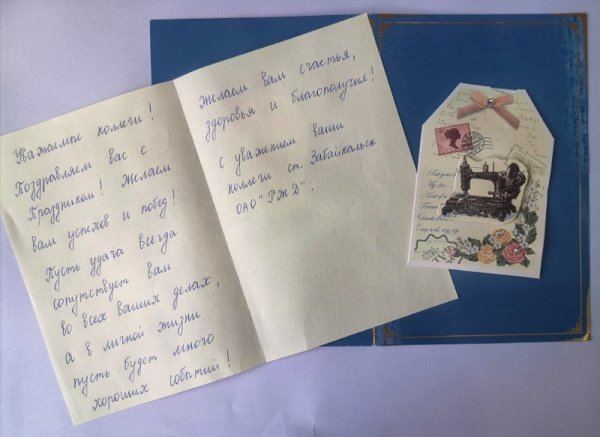 Уважаемые коллеги!
Поздравляем вас с
Праздником! Желаем
вам успехов и побед!
Пусть удача всегда
сопутствует вам
во всех ваших делах,
а в личной жизни
пусть будет много
хороших событий!
Желаем вам счастья,
здоровья и благополучия!
С уважением ваши
коллеги ст. Забайкальск
ОАО "РЖД".